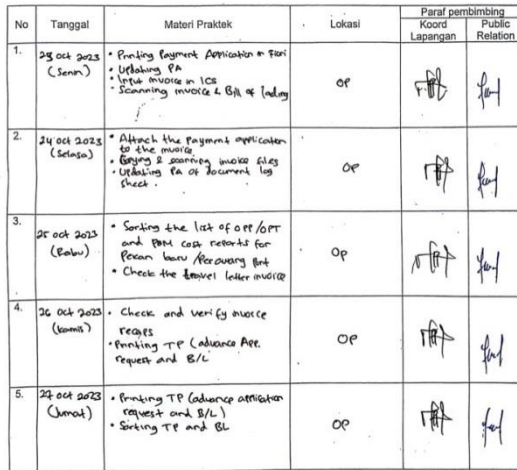 No Tanggal Materi Praktek Lokasi Paraf pembimbing
Koord Lapangan Public Relation
1. 23 Oct 2023 (Senin)
• Printing Payment Application in Fiori
• Updating PA
• Input invoice in ICS
• Scanning invoice & Bill of lading
OP
2. 24 Oct 2023 (Selasa)
• Attach the payment application
to the invoice.
• Copying & scanning invoice files
• Updating PA of document log
sheet.
OP
3. 25 Oct 2023 (Rabu)
• Sorting the list of OPP/OPT
and PBM cost reports for
Pekan baru / Perawang port
• Check the travel letter invoice
OP
4. 26 Oct 2023 (kamis)
• Check and verify invoice
recaps
• Printing TP (advance App.
request and B/L
OP
5. 27 Oct 2023 (Jumat)
• Printing TP (advance application
request and B/L)
• Sorting TP and BL
OP